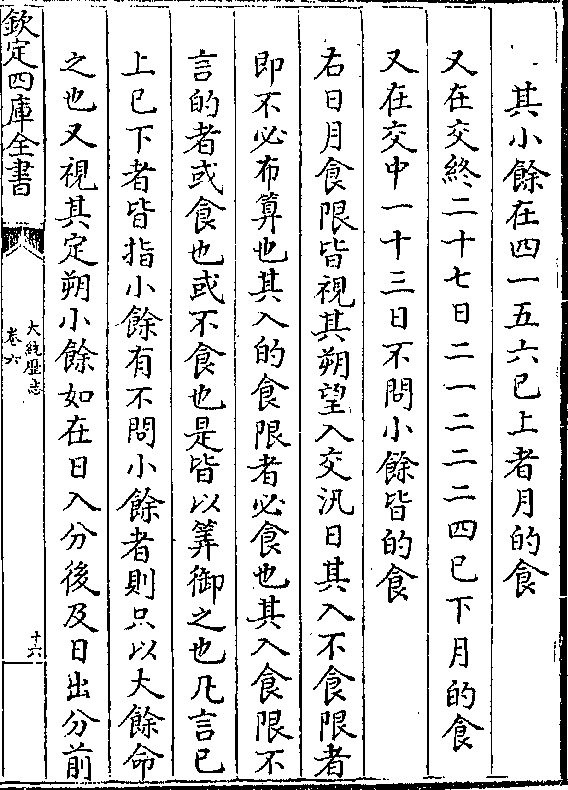 其小餘在四一五六已上者月的食
又在交終二十七日二一二二二四已下月的食
又在交中一十三日不問小餘皆的食
右日月食限皆視其朔望入交汎日其入不食限者
即不必布算也其入的食限者必食也其入食限不
言的者或食也或不食也是皆以筭御之也凡言已
上已下者皆指小餘有不問小餘者則只以大餘命
之也又視其定朔小餘如在日入分後及日出分前
欽定四庫全書
大統歴志
卷六
十六